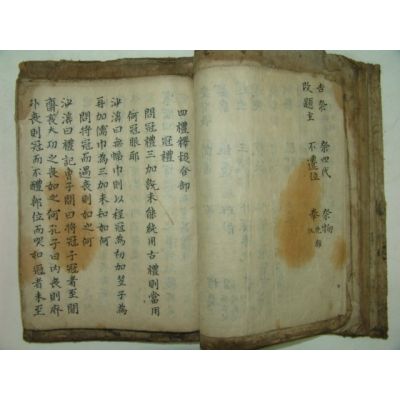 吉祭　祭四代　祭物
改題主　不遷位　奉
四禮釋疑合部
冠禮
問冠禮三加旣未能純用古禮則當用
何冠服耶
沙溪曰無幞巾則以程冠爲初加笠子爲
再加儒巾爲三加未知如何
問將冠而遇喪則如之何
沙溪曰禮記曾子問曰將冠子冠者至聞
齊衰大功之喪如之何孔子曰內喪則廢
外喪則冠而不醴卽位而哭如冠者未至